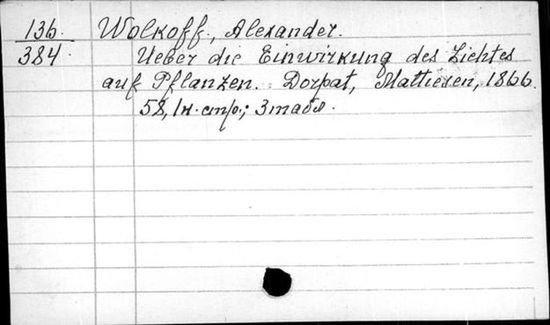 136. Wolkoff, Alexander.
384. Ueber die Einwirkung des Lichtes
auf Pflanzen. Dorpat, Mattiesen, 1866.
58, 1 н. стр.; 3 табл.